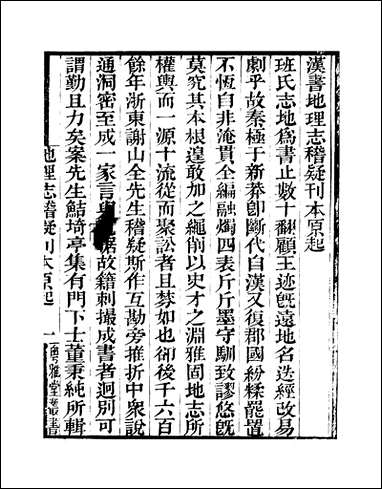 漢書地理志稽疑刊本原起
班氏志地爲書止數十翻顧王迹旣遠地名迭經改易
劇乎故秦極于新莽卽斷代自漢又復郡國紛糅罷置
不恆自非淹貫全編融燭四表斤斤墨守馴致謬悠旣
莫究其本根遑敢加之繩削以史才之淵雅固地志所
權輿而一源十流從而聚訟者且棼如也卻後千六百
餘年浙東謝山全先生稽疑斯作互勘旁推折中衆說
通洞密至成一家言與故籍刺撮成書者迥別可
謂勤且力矣案先生鮚埼亭集有門下士董秉純所輯
地理志稽疑刊本原起 一 粵雅堂叢書